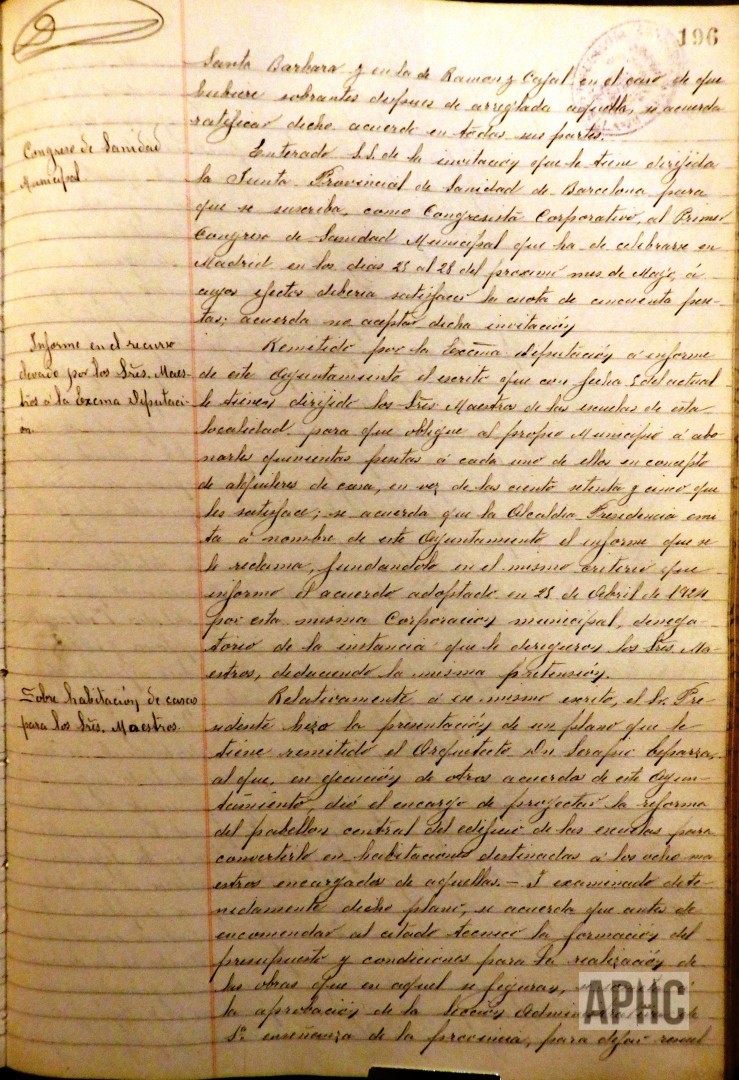 196
Santa Barbara y en la de Ramon y Cajal en el caso de que
hubiere sobrantes despues de arreglada aquella, se acuerda
ratificar dicho acuerdo en todas sus partes.
Congreso de Sanidad
Municipal
Enterado S.S. de la invitacion que le tiene dirijida
la Junta Provincial de Sanidad de Barcelona para
que se suscriba, como Congresista Corporativo, al Primer
Congreso de Sanidad Municipal que ha de celebrarse en
Madrid en los dias 23 al 28 del proximo mes de Mayo, á
cuyos efectos deberia satisfacer la cuota de cincuenta pese-
tas; acuerda no aceptar dicha invitación
Informe en el recurso
elevado por los Srs. Maes-
tros á la Excma Diputaci-
on
Remitido por la Excma Diputación á informe
de este Ayuntamiento el escrito que con fecha 5 del actual
le tienen dirijido los Srs. Maestros de las escuelas de esta
localidad para que obligue al propio Municipio á abo-
narles quinientas pesetas á cada uno de ellos en concepto
de alquileres de casa, en vez de las ciento setenta y cinco que
les satisface; se acuerda que la Alcaldia Presidencia emi
ta á nombre de este Ayuntamiento el informe que se
le reclama, fundandolo en el mismo criterio que
informo el acuerdo adoptado en 23 de Abril de 1924
por esta misma Corporacion municipal, denega-
torio de la instancia que le dirigieron los Srs. Ma-
estros, deduciendo la misma pretensión.
Sobre habitación de casas
para los Srs. Maestros
Relativamente á ese mismo escrito, el Sr. Pre-
sidente hizo la presentación de un plano que le
tiene remitido el Arquitecto Dn Serapio Esparza,
al que, en ejecución de otros acuerdos de este Ayun-
tamiento, dió el encargo de proyectar la reforma
del pabellon central del edificio de las escuelas para
convertirlo en habitaciones destinadas á los ocho ma
estros encargados de aquellas.- Y examinado dete-
nidamente dicho plano, se acuerda que antes de
encomendar al citado tecnico la formación del
presupuesto y condiciones para la realización de
las obras que en aquel se figuran, á
la aprobación de la Sección Administrativa de
1ª enseñanza de la provincia, para dejar resuel
APHC